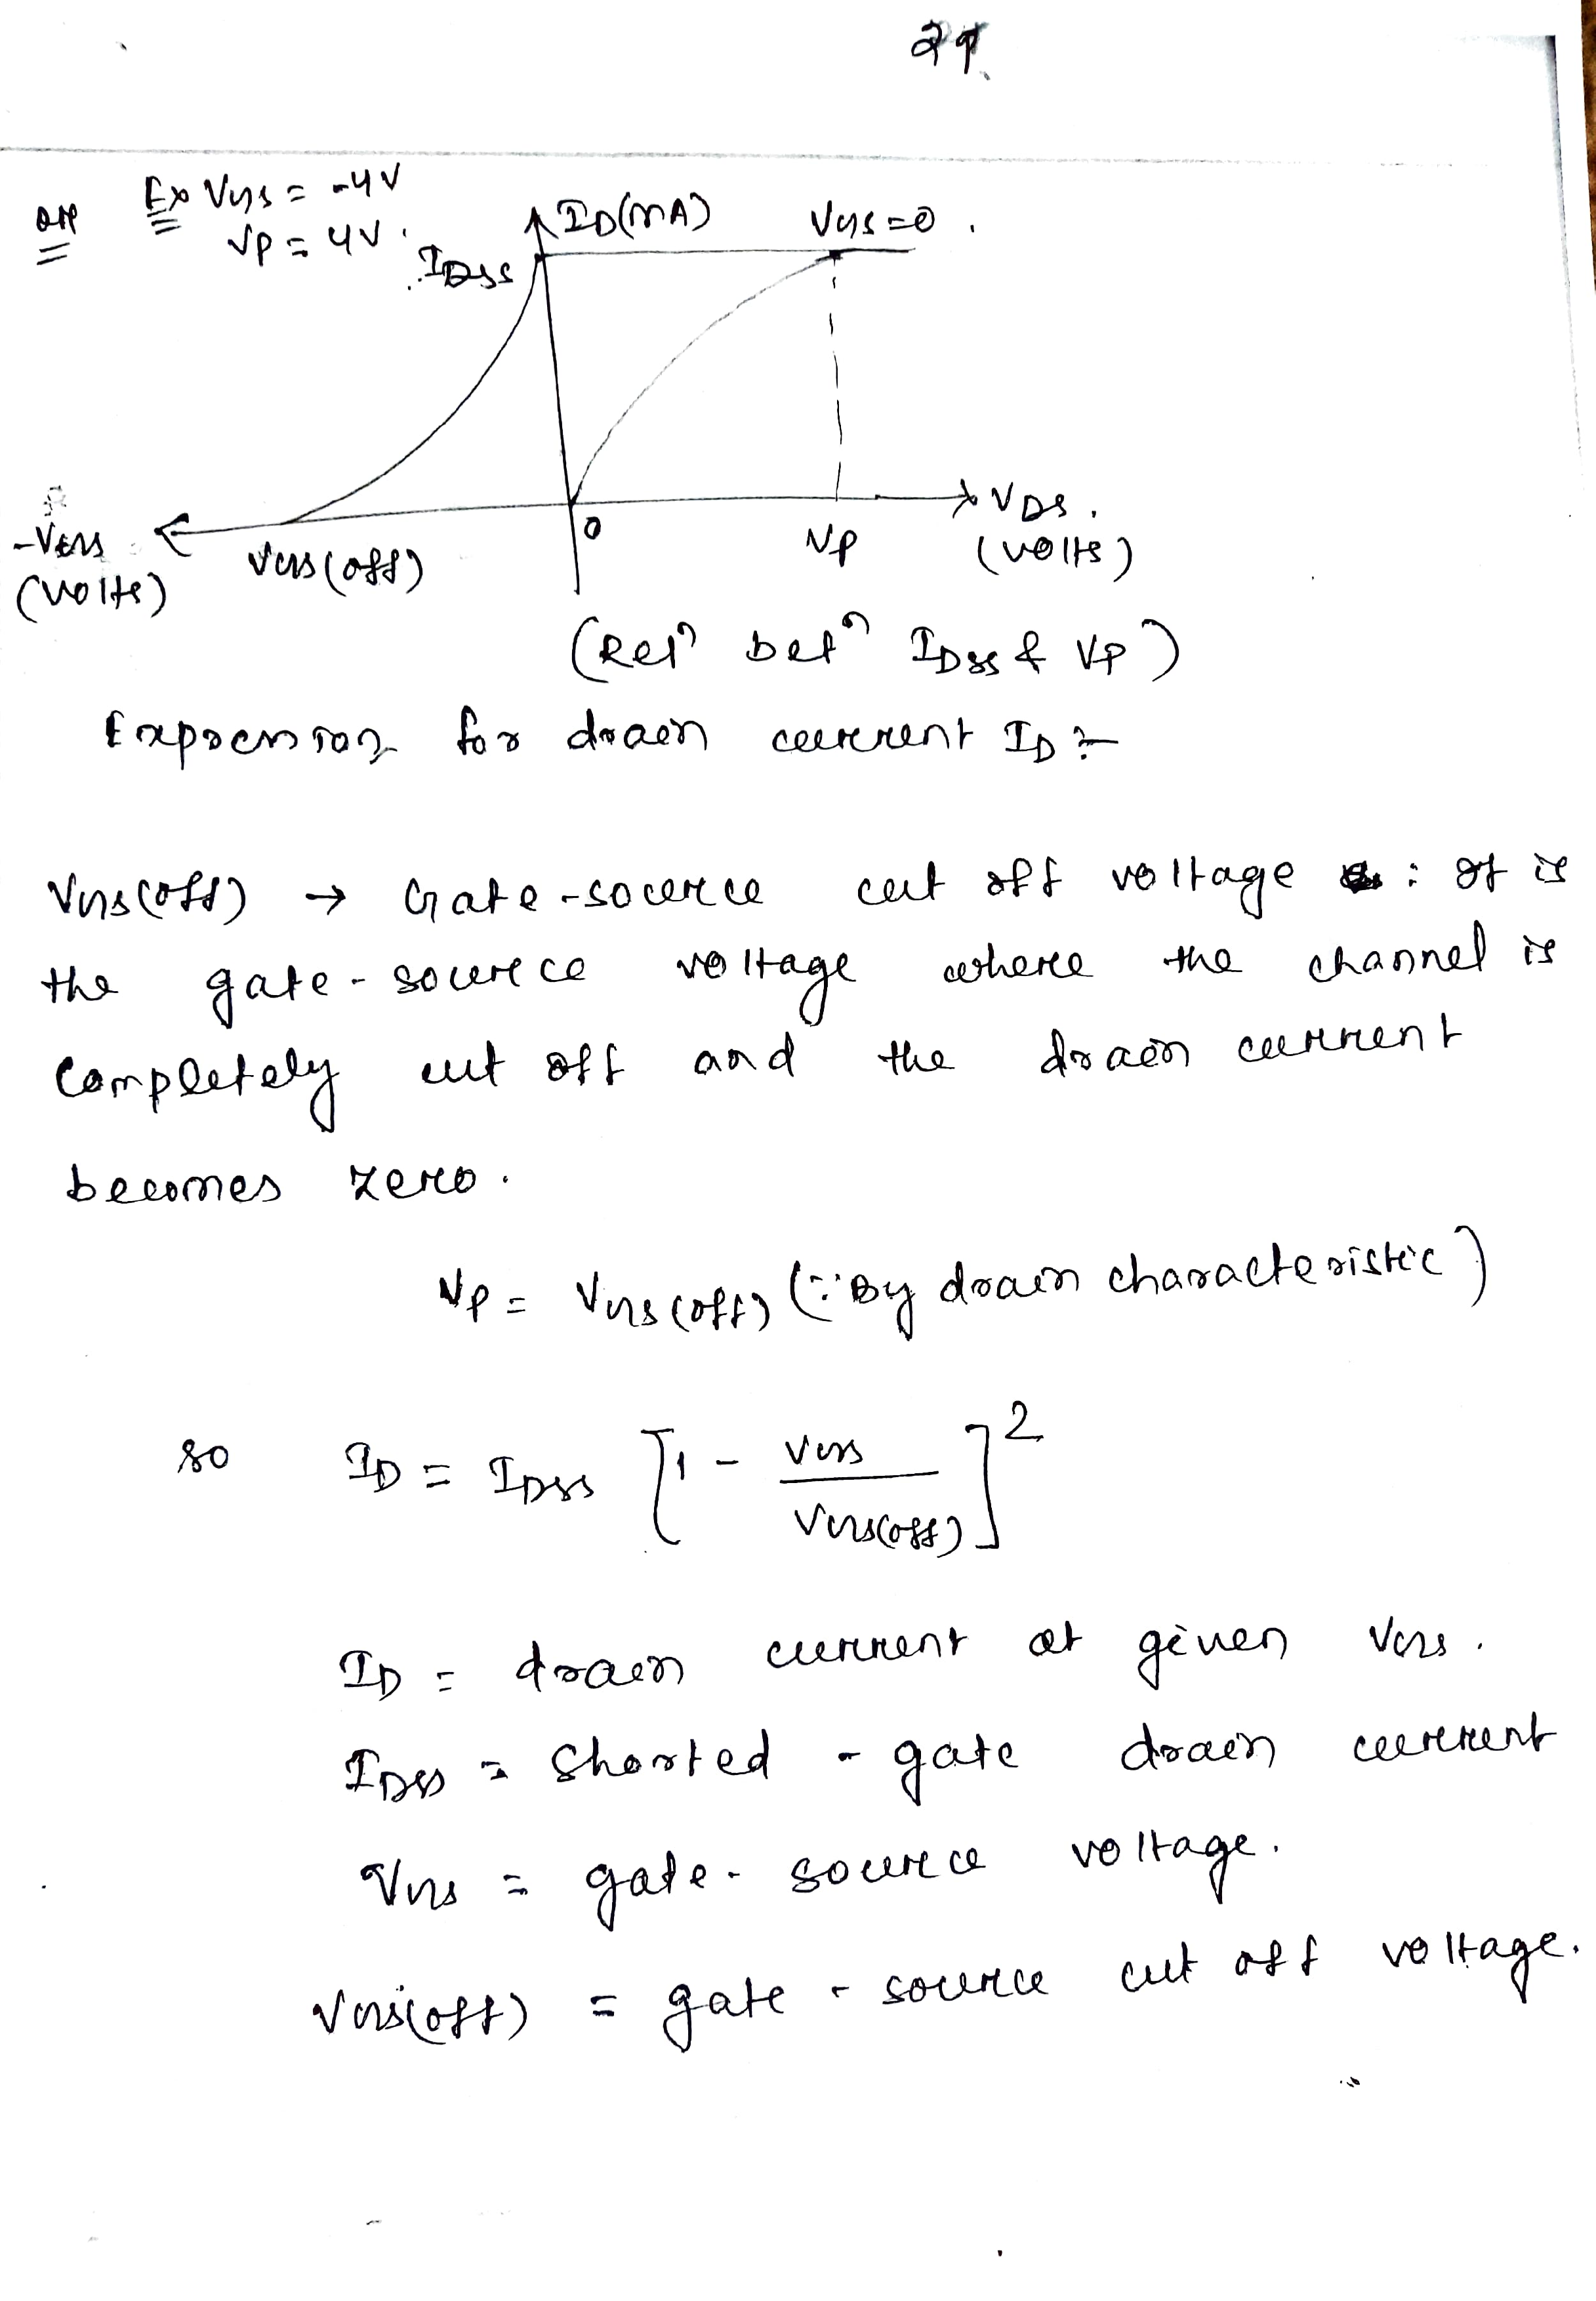 Ex VGS = -4V
VP = 4V.
ID(mA)
VGS=0.
IDSS
-VGS
(volts)
VGS(off)
0
VP
VDS.
(volts)
(Relⁿ betⁿ IDSS & VP)
Expression for drain current ID :-
VGS(off) → Gate-source cut off voltage : It is
the gate-source voltage where the channel is
completely cut off and the drain current
becomes zero.
VP = VGS(off) (∵ By drain characteristic)
so ID = IDSS [1 - VGS / VGS(off)]²
ID = drain current at given VGS.
IDSS = Shorted - gate drain current
VGS = gate - source voltage.
VGS(off) = gate - source cut off voltage.